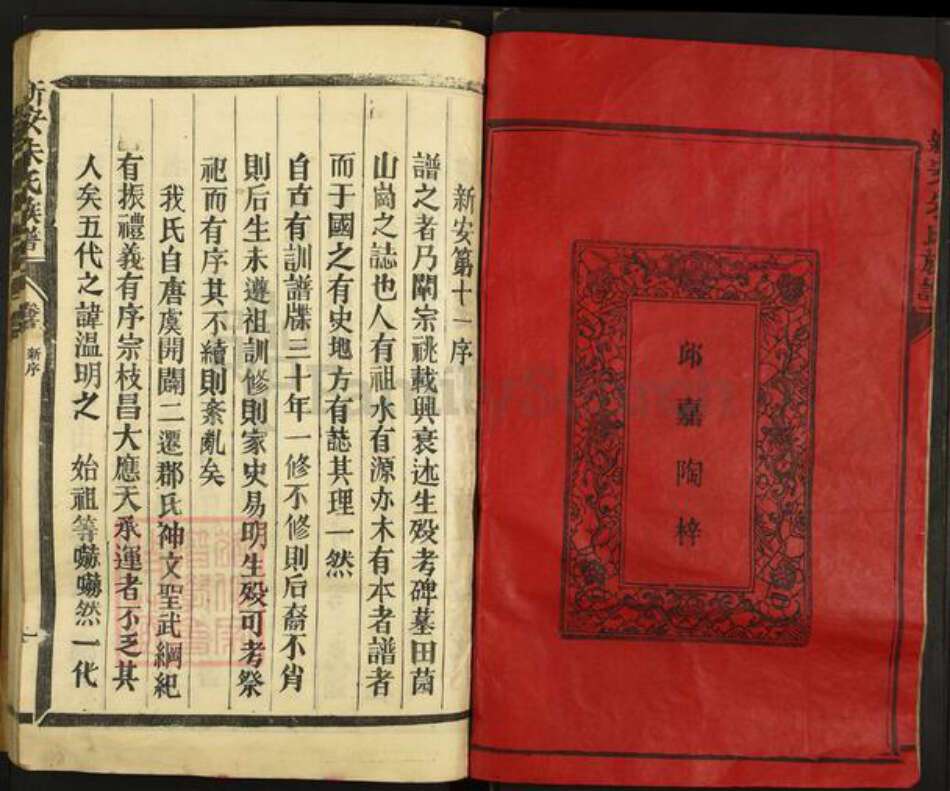 邱嘉陶梓
新安第十一序
譜之者乃闡宗祧載興衰述生殁考碑墓田
山崗之誌也人有祖水有源亦木有本者譜者
而于國之有史地方有誌其理一然
自古有訓譜牒三十年一修不修則后裔不肖
則后生未遵祖訓修則家史易明生殁可考祭
祀而有序其不續則紊亂矣
我氏自唐虞開闢二遷郡氏神文聖武綱紀
有振禮義有序宗枝昌大應天承運者不乏其
人矣五代之諱溫明之 始祖等囌囌然一代
新安朱氏族譜
新序
一